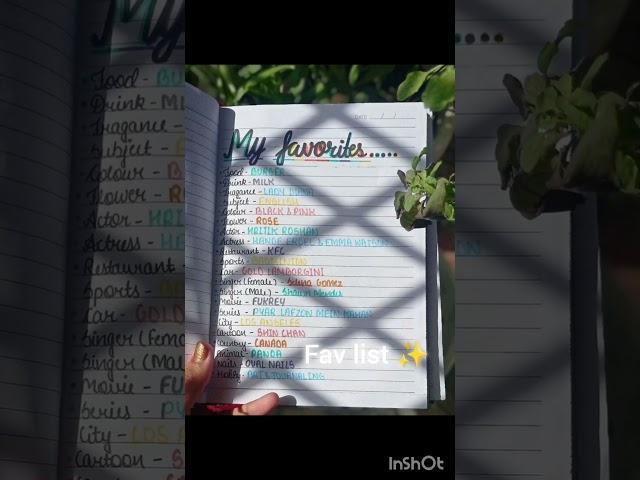 DATE / /
My favorites.....
• Food - BURGER
• Drink - MILK
• Fragance - LADY DIANA
• Subject - ENGLISH
• Colour - BLACK & PINK
• Flower - ROSE
• Actor - HRITIK ROSHAN
• Actress - HANDE ERCEL & EMMA WATSON
• Restaurant - KFC
• Sports -
• Car - GOLD LAMBORGINI
• Singer (Female) - Selena Gomez
• Singer (Male) - Shawn Mendes
• Movie - FUKREY
• Series - PYAR LAFZON MEIN KAHAN
• City - LOS ANGELES
• Cartoon - SHIN CHAN
• Country - CANADA
• Animal - PANDA
• Nails - OVAL NAILS
• Hobby - ART & JOURNALING
Fav list ✨
InShOt